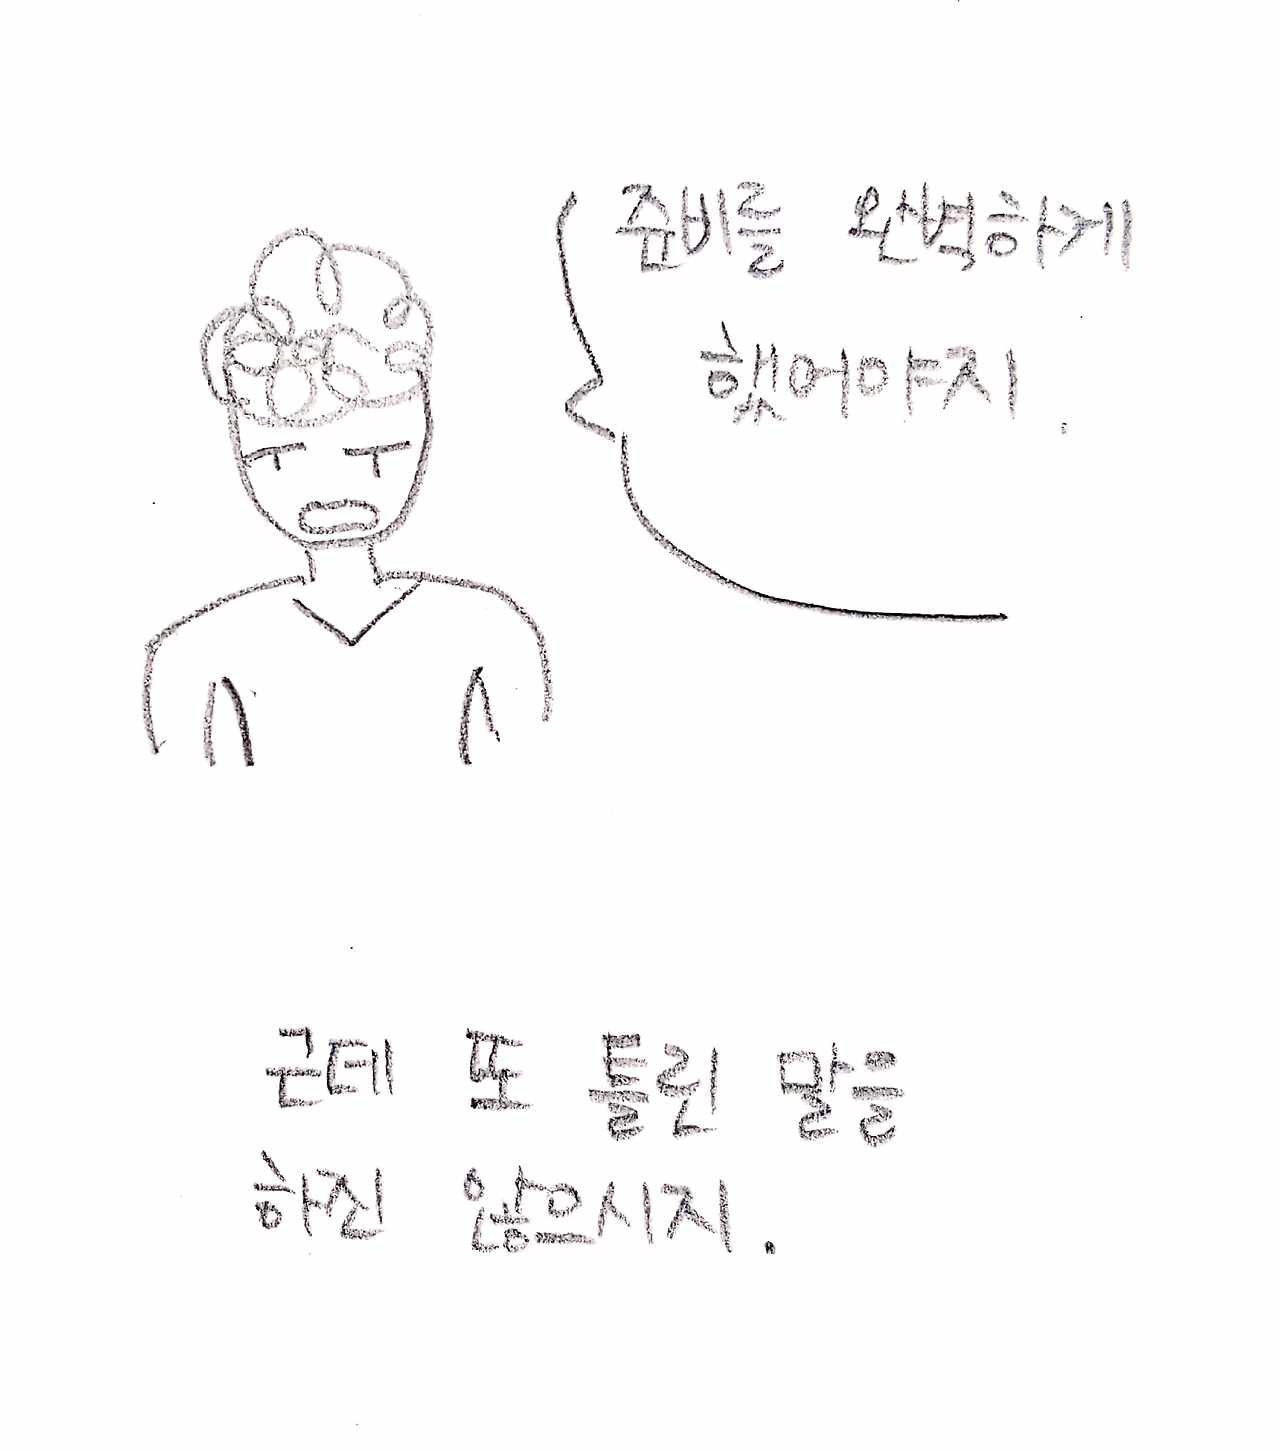 준비를 완벽하게
했어야지.
근데 또 틀린 말을
하진 않으시지.